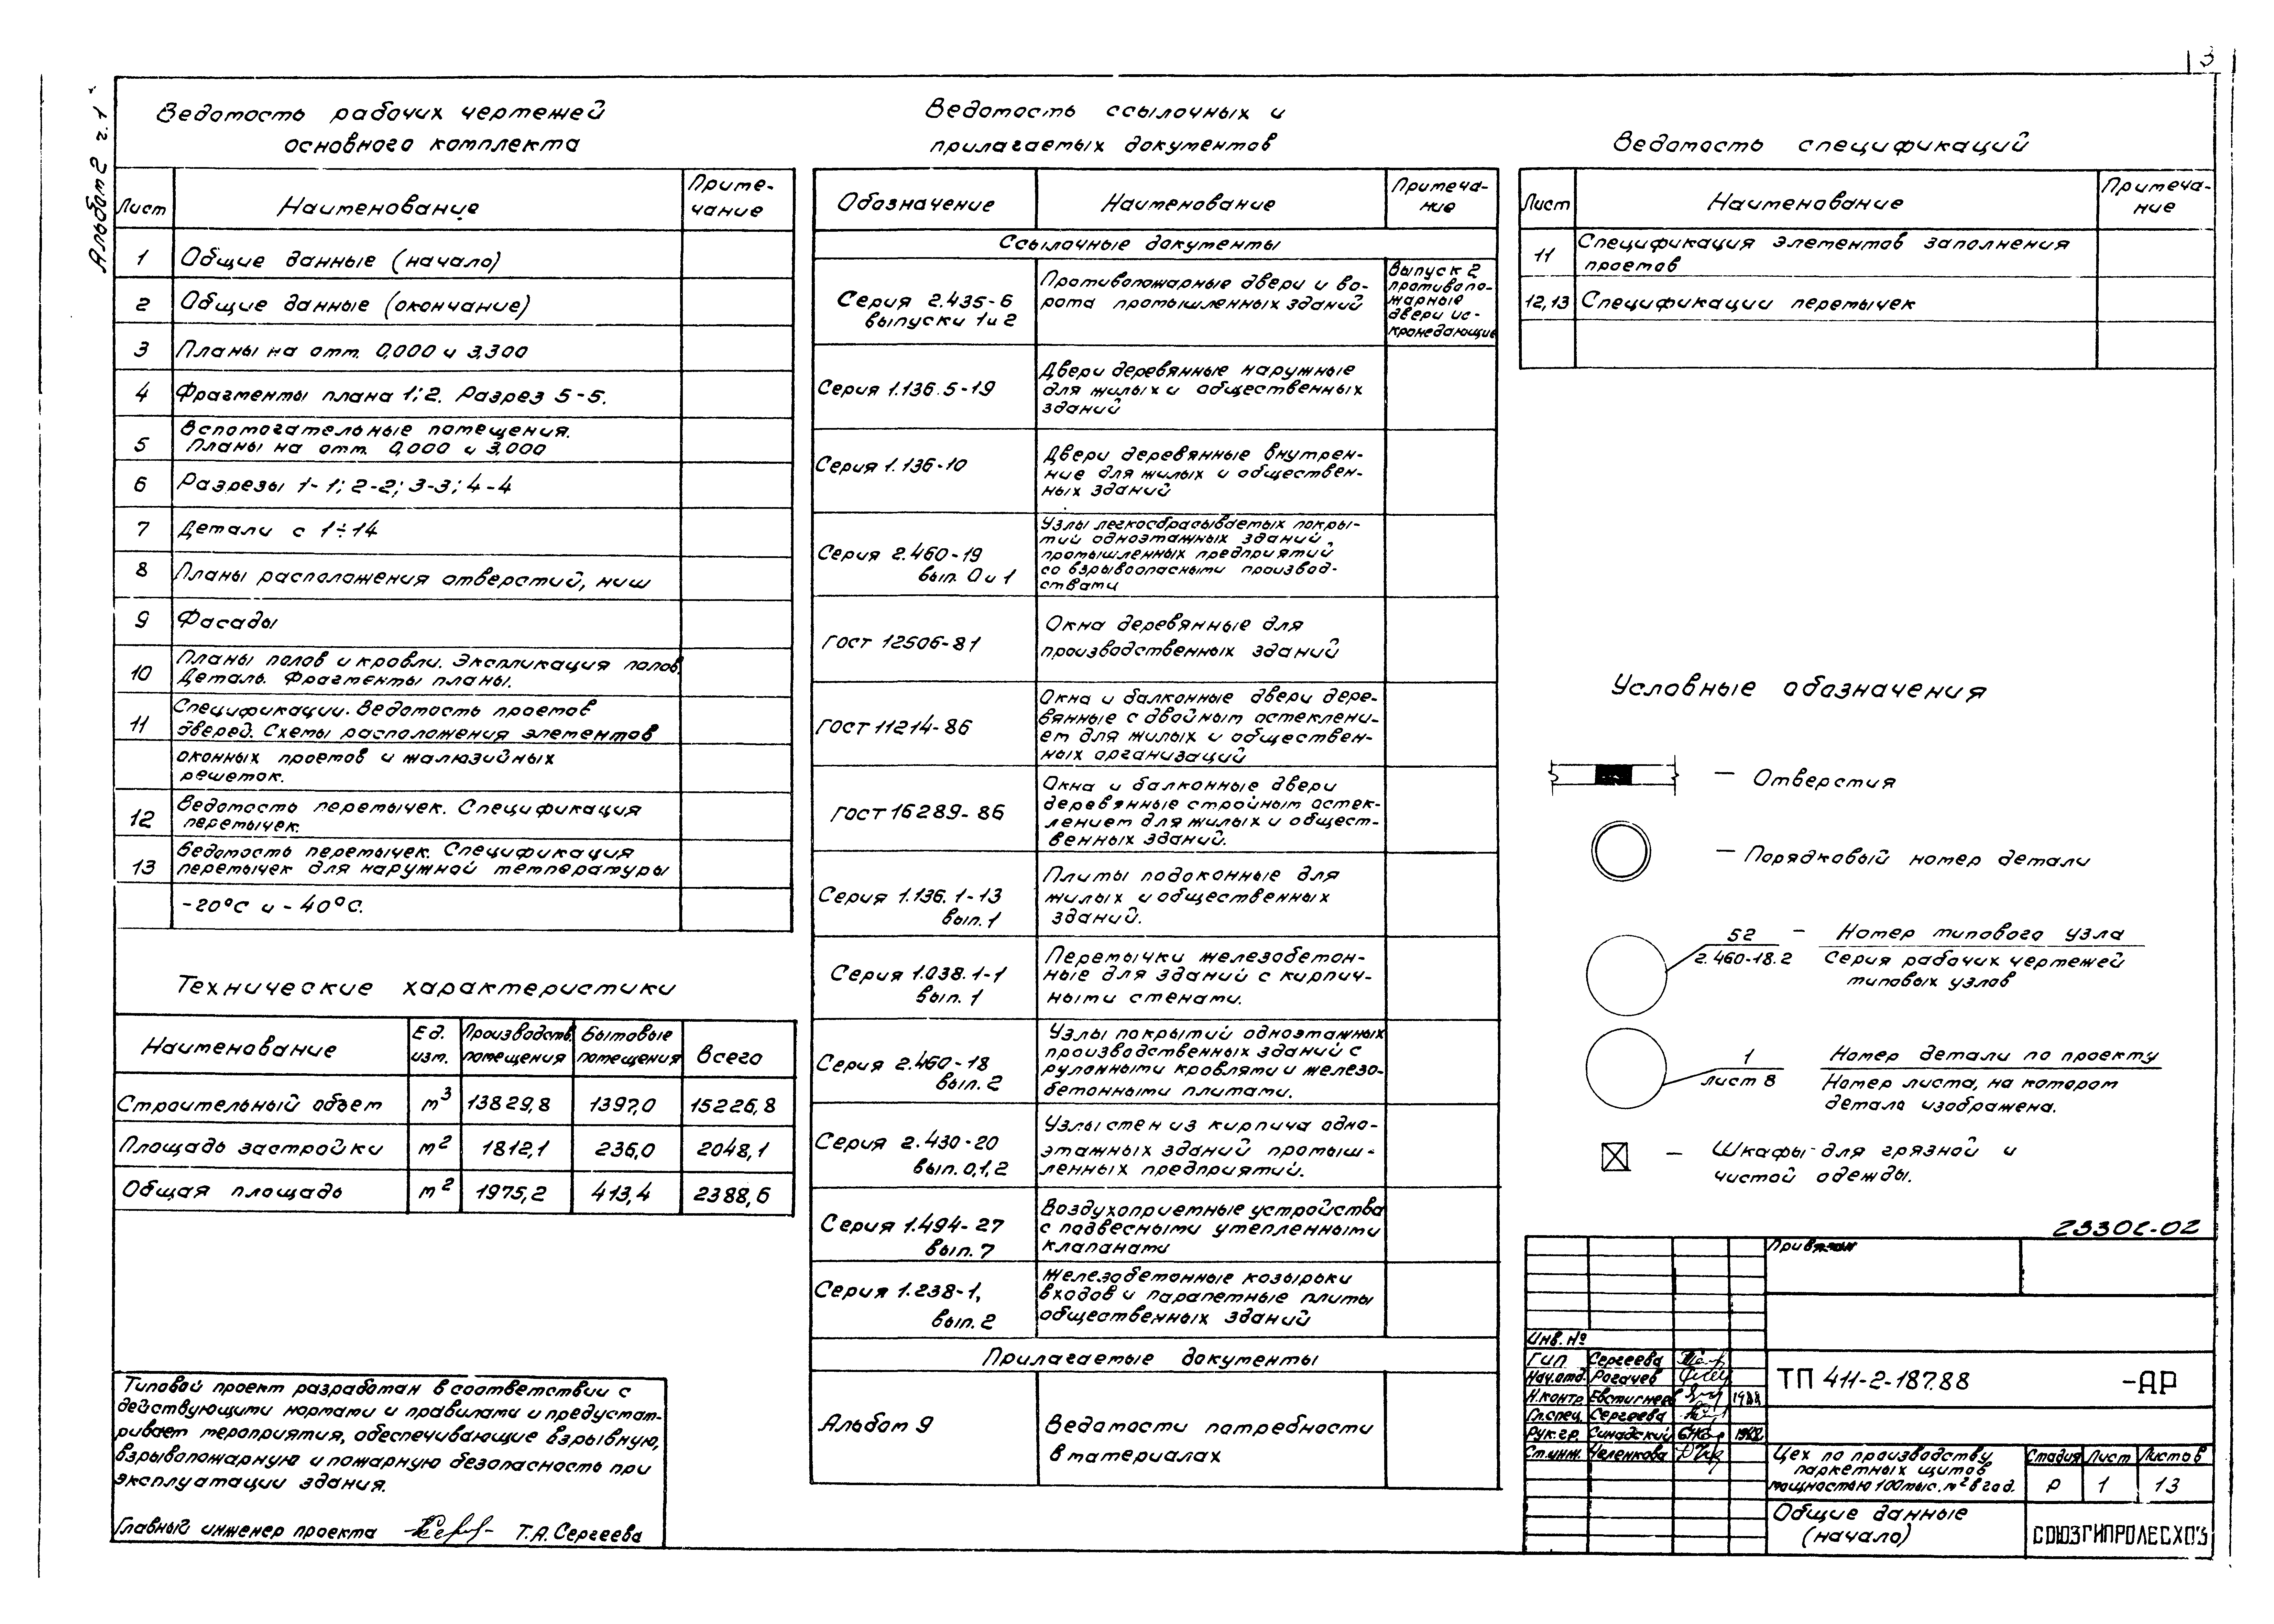 3
Альбом 2 ч.1
Ведомость рабочих чертежей
основного комплекта
Лист
Наименование
Приме-
чание
1
Общие данные (начало)
2
Общие данные (окончание)
3
Планы на отм. 0,000 и 3,300
4
Фрагменты плана 1; 2. Разрез 5-5.
5
Вспомогательные помещения.
Планы на отм. 0,000 и 3,000
6
Разрезы 1-1; 2-2; 3-3; 4-4
7
Детали с 1÷14
8
Планы расположения отверстий, ниш
9
Фасады
10
Планы полов и кровли. Экспликация полов.
Деталь. Фрагменты планы.
11
Спецификации. Ведомость проемов
дверед. Схемы расположения элементов
оконных проемов и жалюзийных
решеток.
12
Ведомость перемычек. Спецификация
перемычек.
13
Ведомость перемычек. Спецификация
перемычек для наружной температуры
-20°С и -40°С.
Технические характеристики
Наименование
Ед.
изм.
Производств.
помещения
Бытовые
помещения
Всего
Строительный объем
м3
13829,8
1397,0
15226,8
Площадь застройки
м2
1812,1
236,0
2048,1
Общая площадь
м2
1975,2
413,4
2388,6
Типовой проект разработан в соответствии с
действующими нормами и правилами и предусмат-
ривает мероприятия, обеспечивающие взрывную,
взрывопожарную и пожарную безопасность при
эксплуатации здания.
Главный инженер проекта
Т.А. Сергеева
Ведомость ссылочных и
прилагаемых документов
Обозначение
Наименование
Примеча-
ние
Ссылочные документы
Серия 2.435-6
выпуски 1 и 2
Противопожарные двери и во-
рота промышленных зданий
Выпуск 2
противопо-
жарные
двери ис-
кронедающие
Серия 1.136.5-19
Двери деревянные наружные
для жилых и общественных
зданий
Серия 1.136-10
Двери деревянные внутрен-
ние для жилых и обществен-
ных зданий
Серия 2.460-19
вып. 0 и 1
Узлы легкосбрасываемых покры-
тий одноэтажных зданий
промышленных предприятий
со взрывоопасными производ-
ствами
ГОСТ 12506-81
Окна деревянные для
производственных зданий
ГОСТ 11214-86
Окна и балконные двери дере-
вянные с двойным остеклени-
ем для жилых и обществен-
ных организаций
ГОСТ 16289-86
Окна и балконные двери
деревянные с тройным остек-
лением для жилых и общест-
венных зданий.
Серия 1.136.1-13
вып. 1
Плиты подоконные для
жилых и общественных
зданий.
Серия 1.038.1-1
вып. 1
Перемычки железобетон-
ные для зданий с кирпич-
ными стенами.
Серия 2.460-18
вып. 2
Узлы покрытий одноэтажных
производственных зданий с
рулонными кровлями и железо-
бетонными плитами.
Серия 2.430-20
вып. 0,1,2
Узлы стен из кирпича одно-
этажных зданий промыш-
ленных предприятий.
Серия 1.494-27
вып. 7
Воздухоприемные устройства
с подвесными утепленными
клапанами
Серия 1.238-1,
вып. 2
Железобетонные козырьки
входов и парапетные плиты
общественных зданий
Прилагаемые документы
Альбом 9
Ведомости потребности
в материалах
Ведомость спецификаций
Лист
Наименование
Примеча-
ние
11
Спецификация элементов заполнения
проемов
12,13
Спецификации перемычек
Условные обозначения
— Отверстия
— Порядковый номер детали
52
2.460-18.2
— Номер типового узла
Серия рабочих чертежей
типовых узлов
1
лист 8
Номер детали по проекту
Номер листа, на котором
деталь изображена.
— Шкафы для грязной и
чистой одежды.
23302-02
Привязан
Инв. №
ГИП Сергеева
Нач.отд. Рогачев
Н.контр Евстигнеев 1988
Гл.спец. Сергеева
Рук.гр. Синадский 1988
Ст.инж. Челенкова
ТП 411-2-187.88 -АР
Цех по производству
паркетных щитов
мощностью 100тыс. м2 в год.
Стадия Лист Листов
Р 1 13
Общие данные
(начало)
СОЮЗГИПРОЛЕСХОЗ